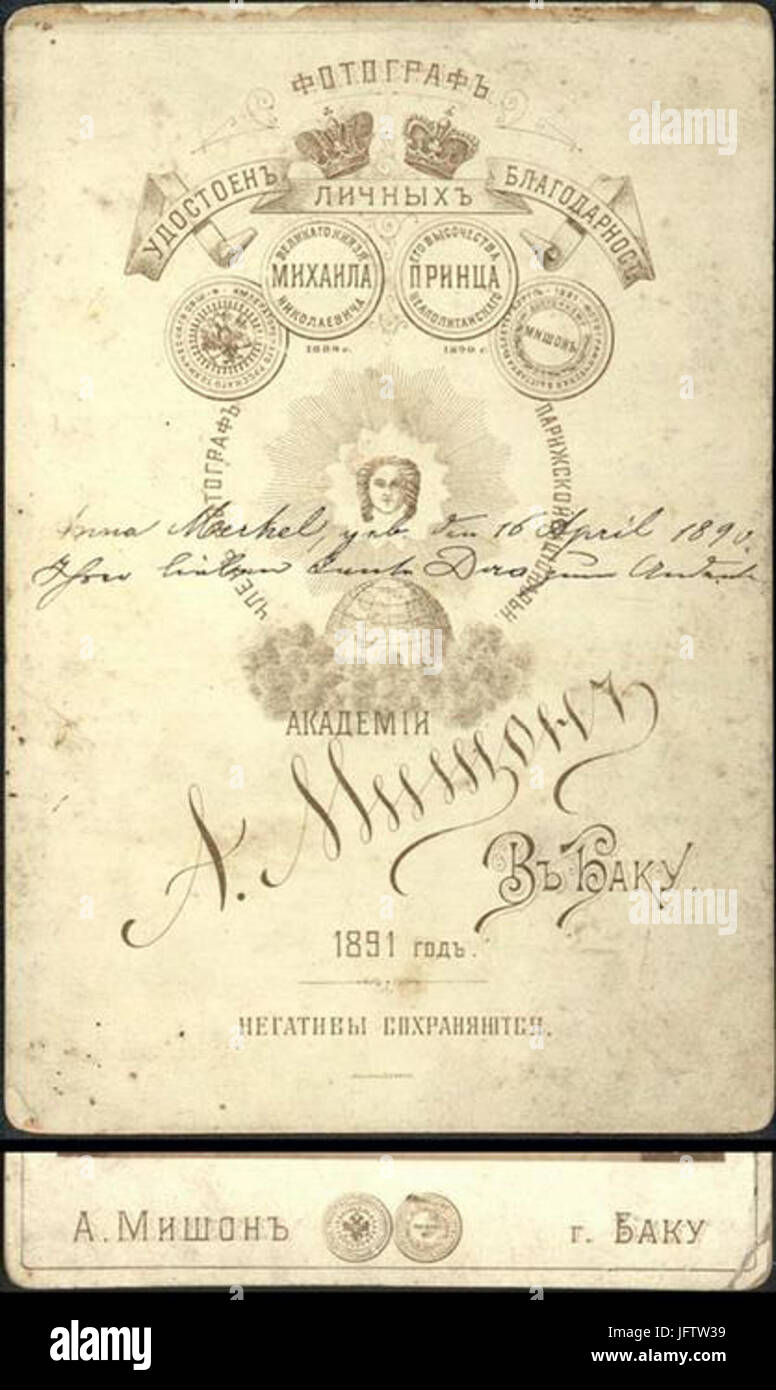 ФОТОГРАФЪ
УДОСТОЕНЪ ЛИЧНЫХЪ БЛАГОДАРНОСТ
ВЕЛИКАГО КНЯЗЯ МИХАИЛА НИКОЛАЕВИЧА
ЕГО ВЫСОЧЕСТВА ПРИНЦА НЕАПОЛИТАНСКАГО
МИШОНЪ
1888 г. 1890 г.
ЧЛЕНЪ ПАРИЖСКОЙ
Merkel, geb. den 16 April 1890.
Ihrer lieben Tante
АКАДЕМІИ
А. Мишонъ
Въ Баку.
1891 годъ.
НЕГАТИВЫ СОХРАНЯЮТСЯ.
А. Мишонъ г. Баку
alamy
alamy
alamy
Image ID: JFTW39
www.alamy.com